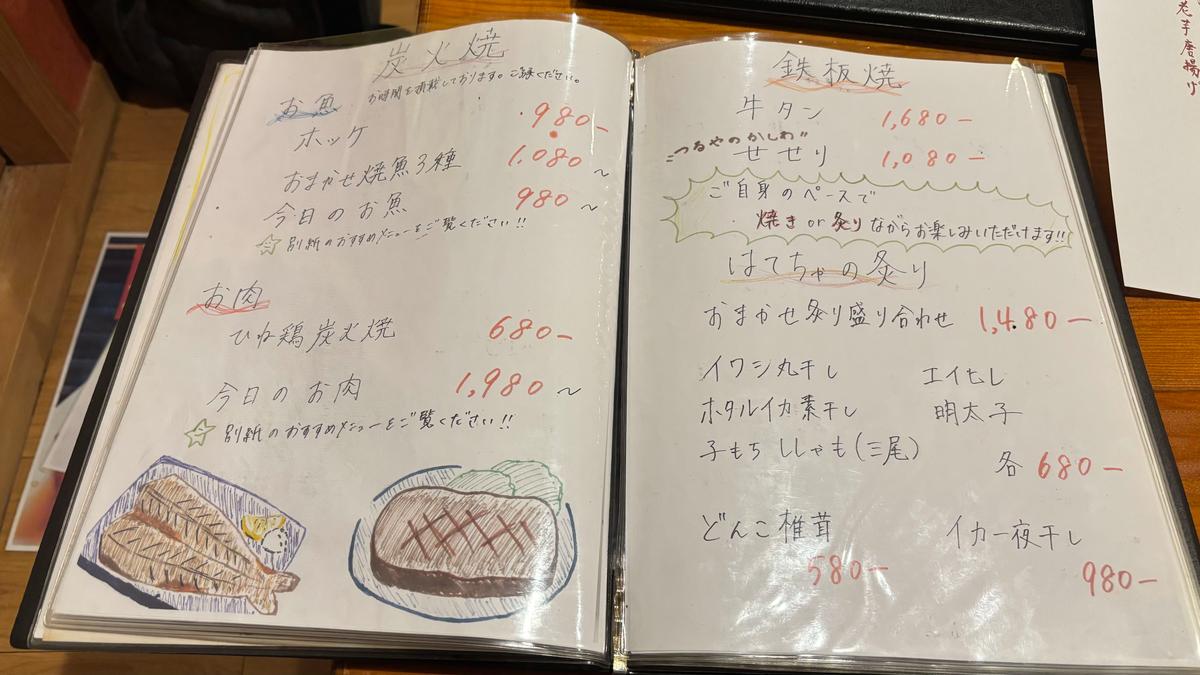 炭火焼
お時間を頂戴しております。ご了承ください。
お魚
ホッケ 980-
おまかせ焼魚3種 1,080~
今日のお魚 980~
☆別紙のおすすめメニューをご覧ください!!
お肉
ひね鶏炭火焼 680-
今日のお肉 1,980~
☆別紙のおすすめメニューをご覧ください!!
鉄板焼
牛タン 1,680-
"つるやのかしわ"
せせり 1,080-
ご自身のペースで
焼きor炙りながらお楽しみいただけます!!
はてちゃの炙り
おまかせ炙り盛り合わせ 1,480-
イワシ丸干し エイヒレ
ホタルイカ素干し 明太子
子もちししゃも(三尾)
各680-
どんこ椎茸 イカ一夜干し
580- 980-
芋唐揚げ